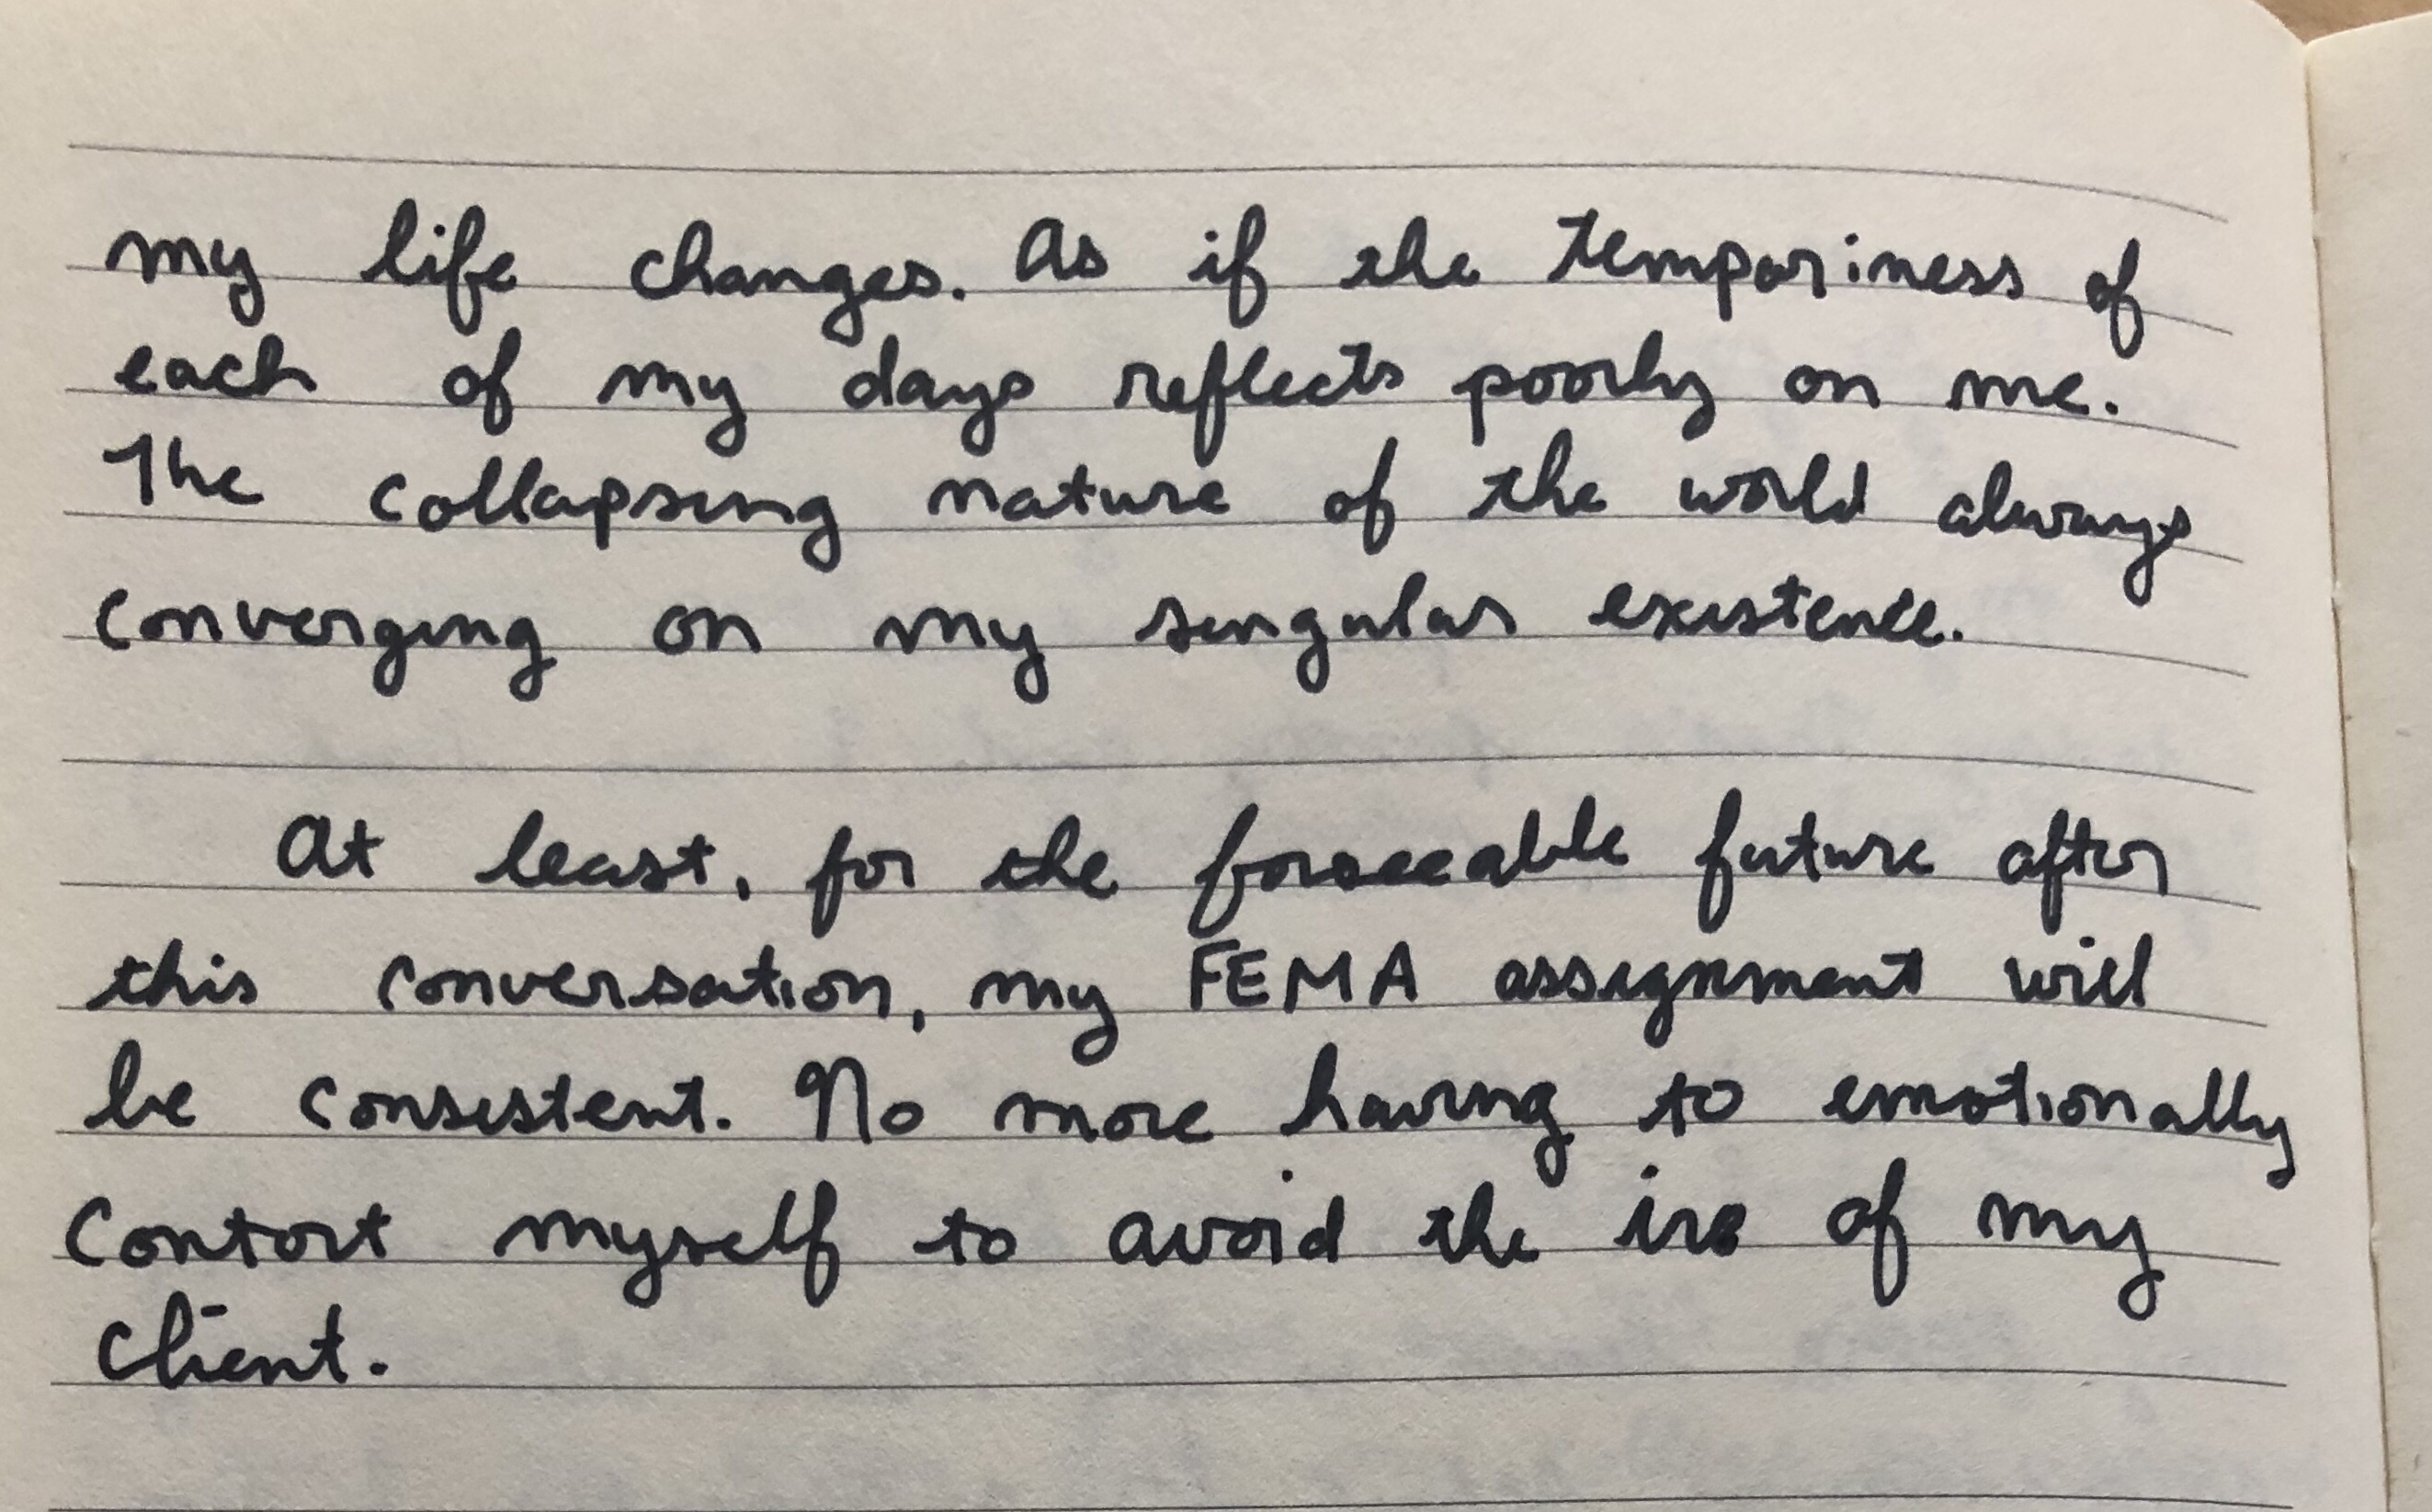 my life changes. As if the tempariness of
each of my days reflects poorly on me.
The collapsing nature of the world always
converging on my singular existence.
At least, for the forseeable future after
this conversation, my FEMA assignment will
be consistent. No more having to emotionally
contort myself to avoid the ire of my
client.